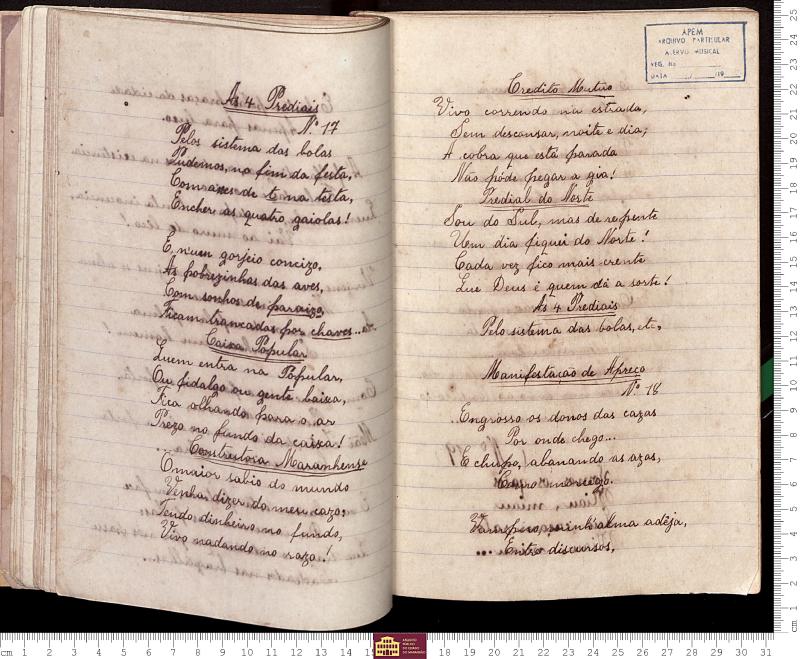 As 4 Prediais
Nº 17
Pelos sistema das bolas
Pudemos, no fim da festa,
Com azes de t na testa,
Encher as quatro gaiolas!
E n'um gorjeio concizo,
As pobrezinhas das aves,
Com sonhos de paraizo,
Ficam trancadas por chaves...
Caixa Popular
Quem entra na Popular,
Ou fidalgo ou gente baixa,
Fica olhando para o ar
Prezo no fundo da caixa!
Constructora Maranhense
O maior sabio do mundo
Venha dizer do meu cazo:
Tendo dinheiro no fundo,
Vivo nadando no razo!
APEM
ARQUIVO PARTICULAR
ACERVO MUSICAL
REG. No
DATA / /19
Credito Mutuo
Vivo correndo na estrada,
Sem descansar, noite e dia;
A cobra que está parada
Não póde pegar a gia!
Predial do Norte
Sou do Sul, mas de repente
Um dia fiquei do Norte!
Cada vez fico mais crente
Que Deus é quem dá a sorte!
As 4 Prediais
Pelo sistema das bolas, etc,
Manifestação de Apreço
Nº 18
Engrosso os donos das cazas
Por onde chego...
E chupo, abanando as azas,
Como morcego.
alma adêja,
Entro discursos,
cm 1 2 3 4 5 6 7 8 9 10 11 12 13 14 15
ARQUIVO PÚBLICO DO ESTADO DO MARANHÃO
17 18 19 20 21 22 23 24 25 26 27 28 29 30 31
25 24 23 22 21 20 19 18 17 16 15 14 13 12 11 10 9 8 7 6 5 4 3 2 1 cm